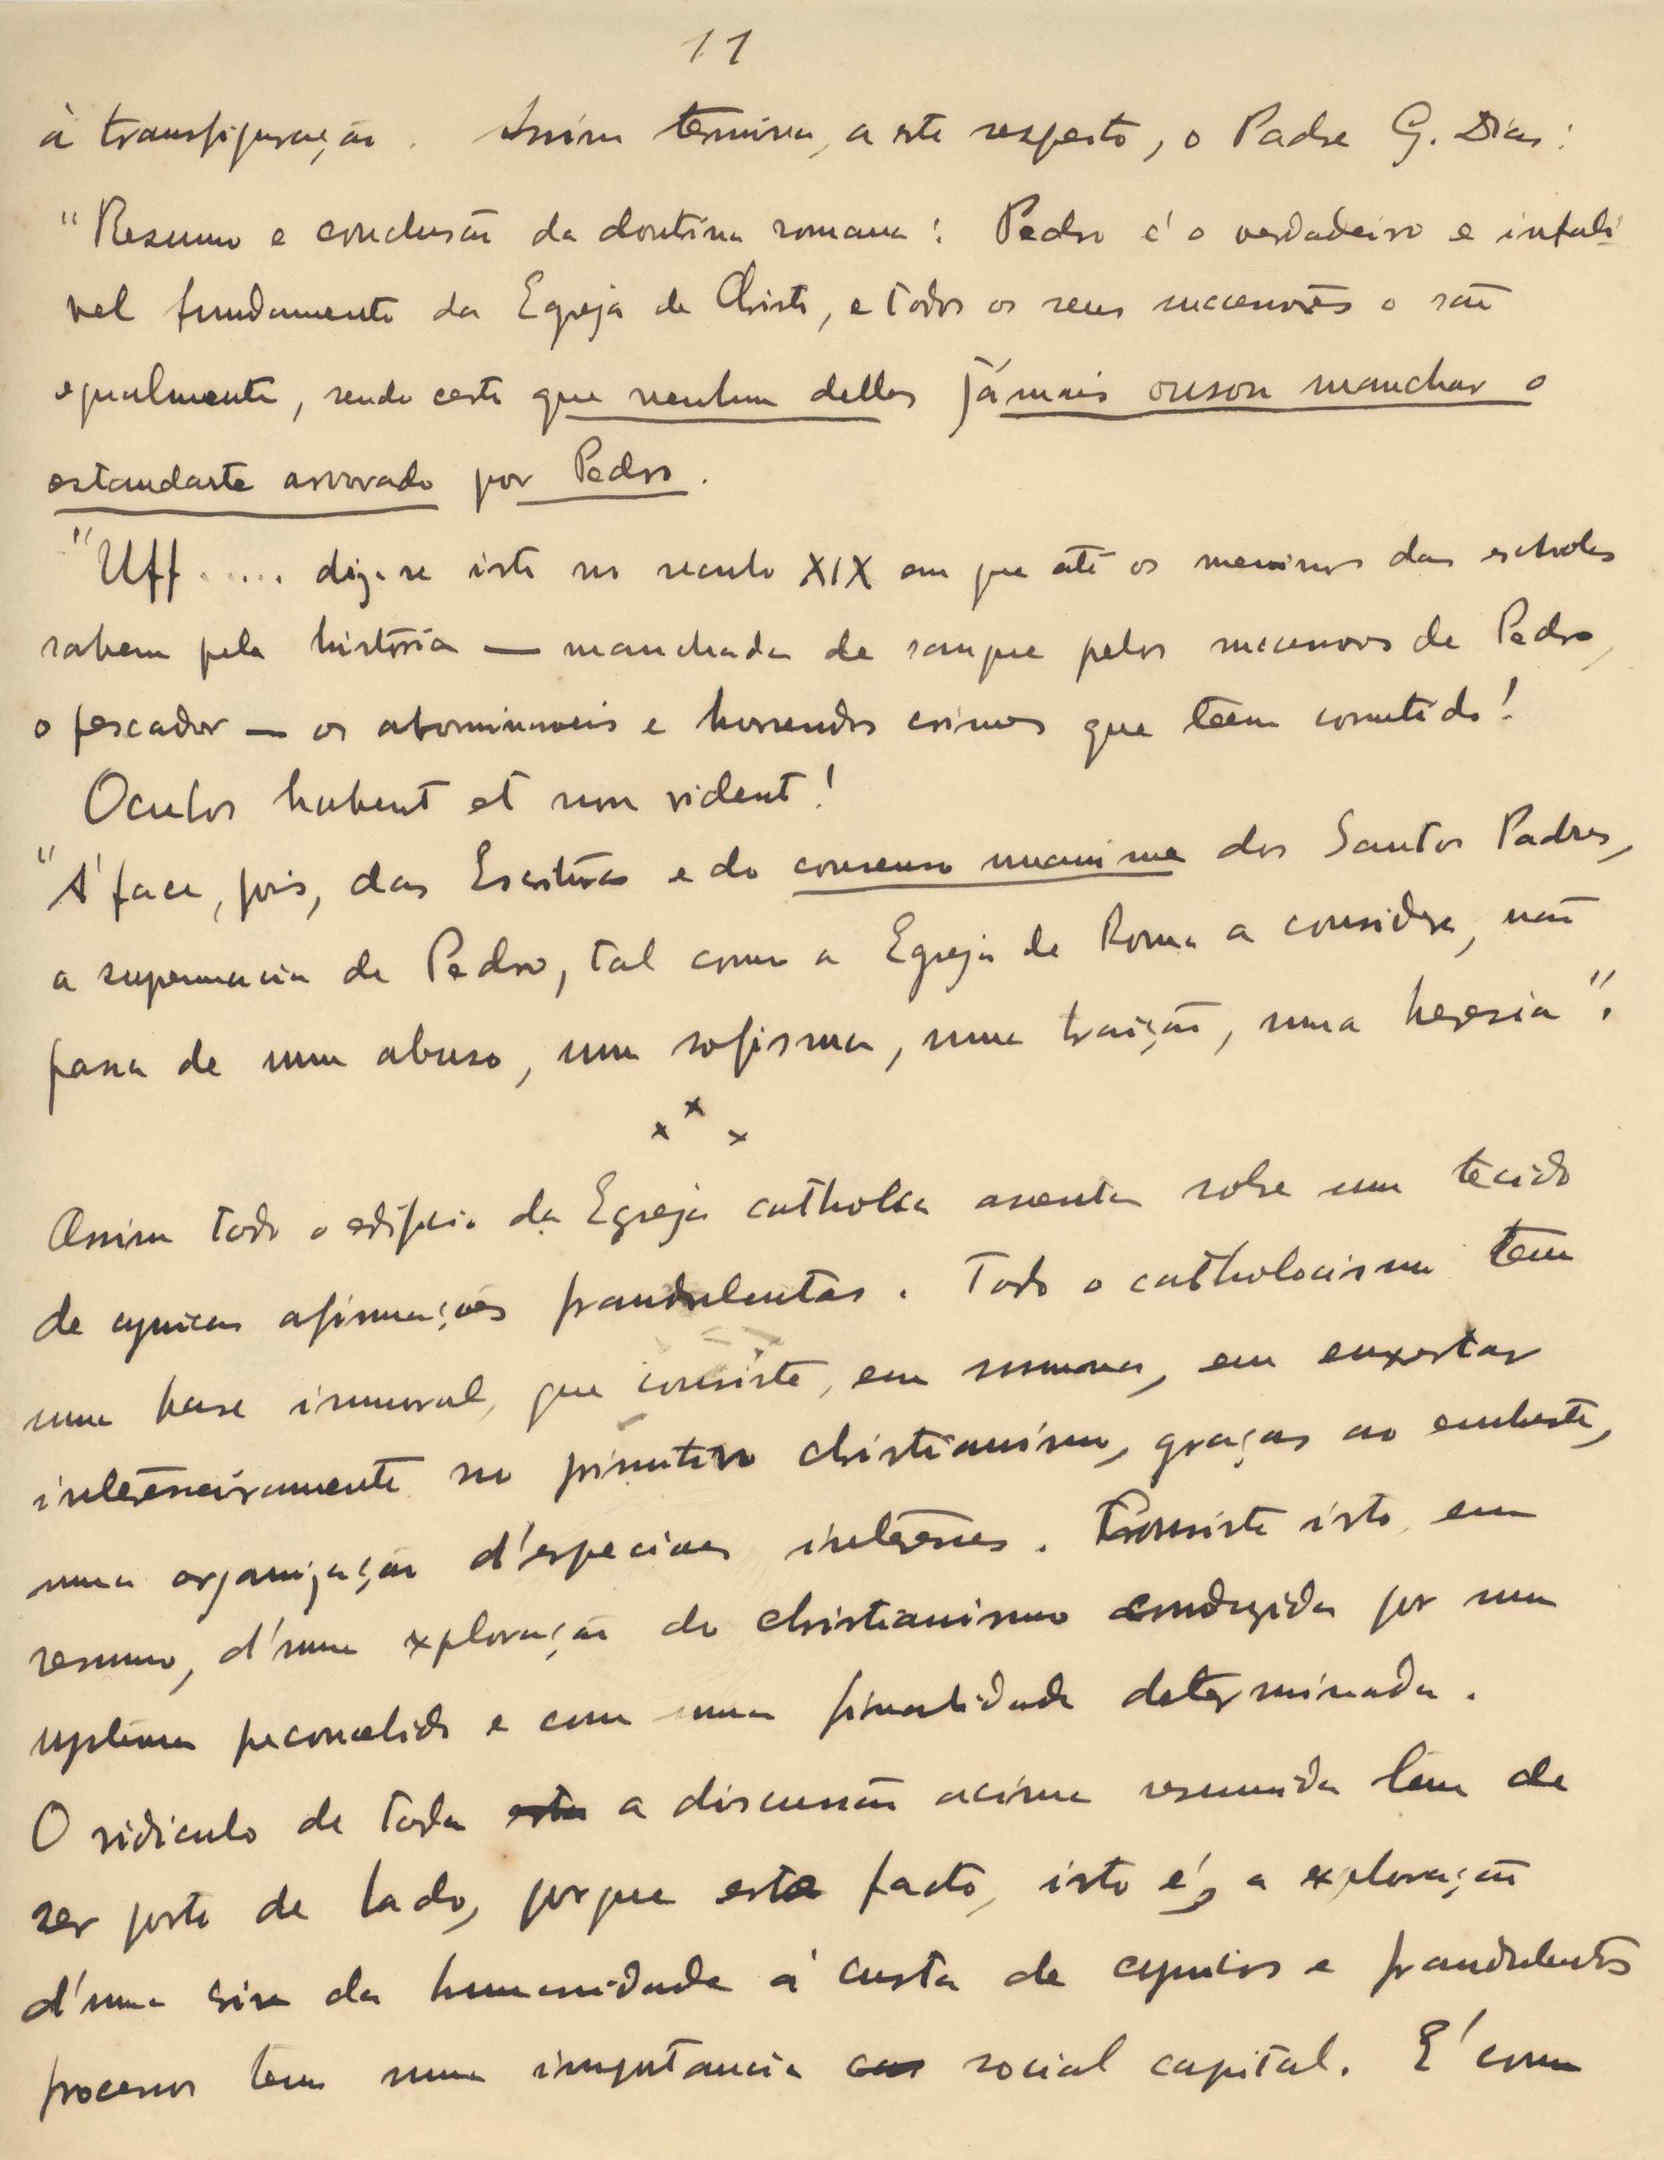 11
à transfiguração. Assim termina, a este respeito, o Padre G. Dias:
"Resumo e conclusão da doutrina romana: Pedro é o verdadeiro e infali
vel fundamento da Egreja de Christo, e todos os seus successores o são
egualmente, sendo certo que nenhum delles jámais ousou manchar o
estandarte arvorado por Pedro.
"Uff..... diz-se isto no seculo XIX em que até os meninos das escholas
sabem pela história — manchada de sangue pelos successores de Pedro,
o pescador — os abominaveis e horrendos crimes que teem comettido!
Oculos habent et non vident!
"Á face, pois, das Escrituras e do consenso unanime dos Santos Padres,
a supremacia de Pedro, tal como a Egreja de Roma a considera, não
passa de um abuso, um sofisma, uma traição, uma heresia".
x x x
Assim todo o edificio da Egreja catholica assenta sobre um tecido
de cynicas afirmações fraudulentas. Todo o catholocismo tem
uma base immoral, que consiste, em summa, em enxertar
interesseiramente no primitivo christianismo, graças ao embuste,
uma organização d'especiaes interesses. Consiste isto, em
resumo, d'uma exploração do christianismo conduzida por um
systema preconcebido e com uma finalidade determinada.
O ridiculo de toda esta a discussão acima resumida tem de
ser posto de lado, porque este facto, isto é, a exploração
d'uma sin da humanidade á custa de cynicos e fraudulentos
processos tem uma importancia social capital. É como